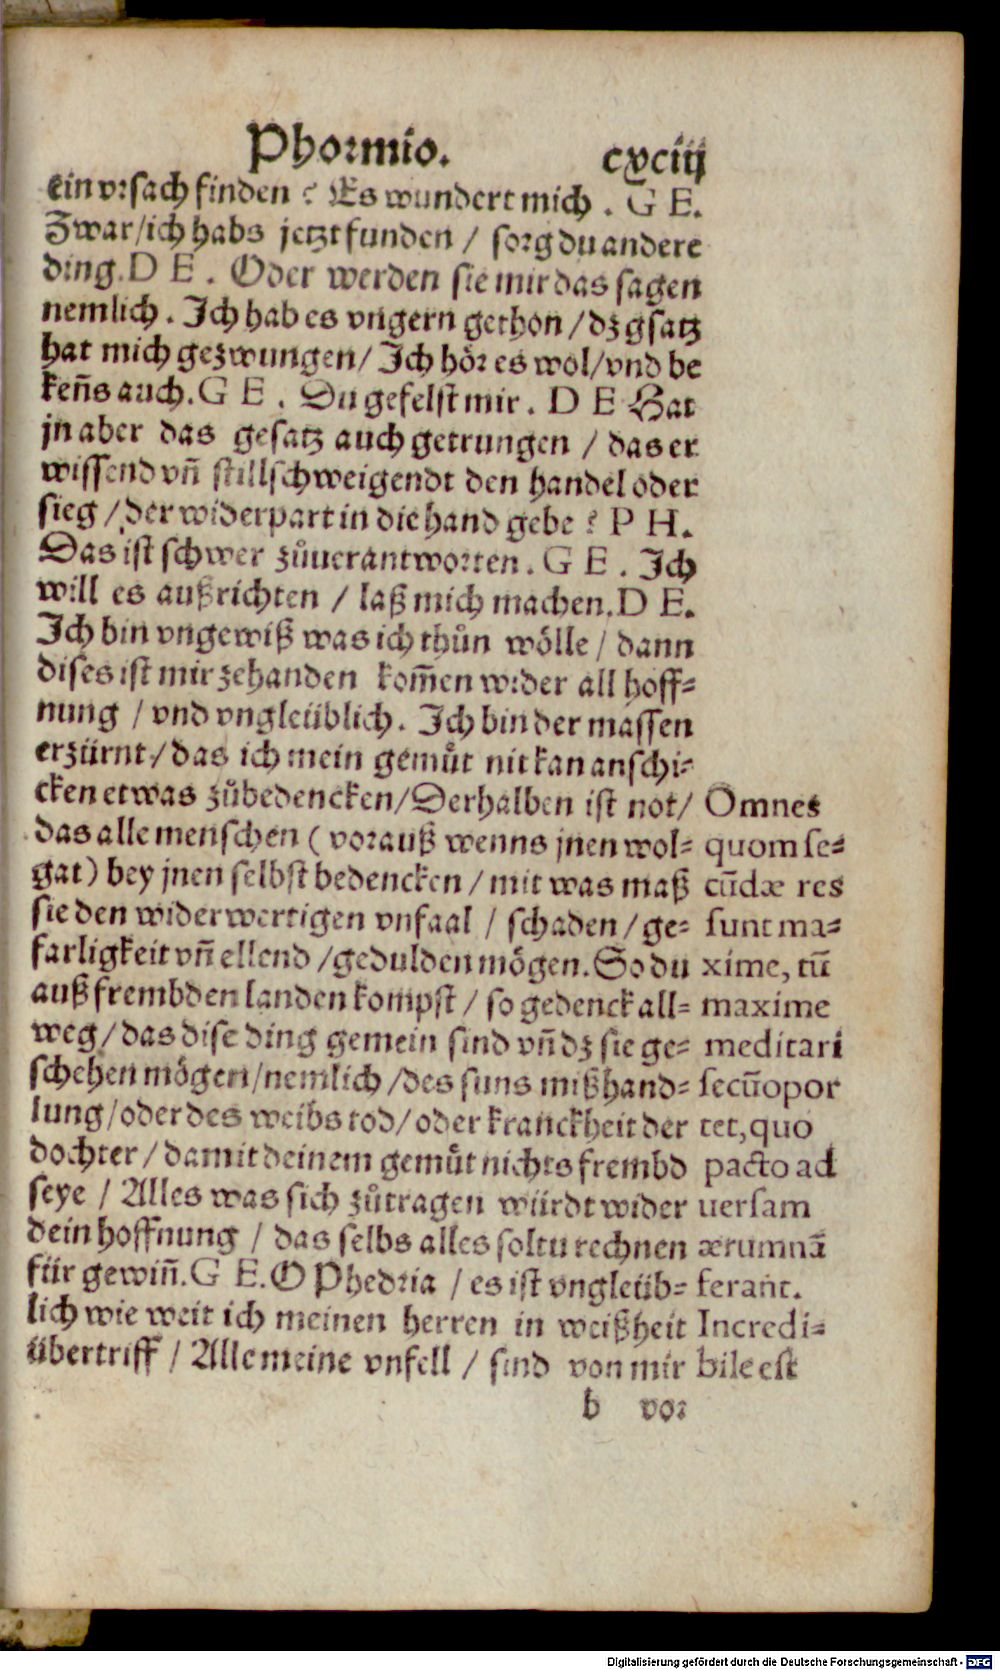 Phormio. cxciij
ein vrsach finden? Es wundert mich. G E.
Zwar/ich habs jetzt funden / sorg du andere
ding. D E. Oder werden sie mir das sagen
nemlich. Ich hab es vngern gethon / dz gsatz
hat mich gezwungen/ Ich hör es wol/vnd be
keñs auch. G E. Du gefelst mir. D E Hat
jn aber das gesatz auch getrungen / das er
wissend vñ stillschweigendt den handel oder
sieg / der widerpart in die hand gebe? P H.
Das ist schwer zůuerantworten. G E. Ich
will es außrichten / laß mich machen. D E.
Ich bin vngewiß was ich thůn wölle / dann
dises ist mir zehanden kom̃en wider all hoff=
nung / vnd vngleüblich. Ich bin der massen
erzürnt / das ich mein gemůt nit kan anschi=
cken etwas zůbedencken/ Derhalben ist not/
das alle menschen ( vorauß wenns jnen wol=
gat) bey jnen selbst bedencken / mit was maß
sie den widerwertigen vnfaal / schaden / ge=
farligkeit vñ ellend / gedulden mögen. So du
auß frembden landen kompst / so gedenck all=
weg / das dise ding gemein sind vñ dz sie ge=
schehen mögen/nemlich / des suns mißhand=
lung/oder des weibs tod/ oder kranckheit der
dochter / damit deinem gemůt nichts frembd
seye / Alles was sich zůtragen würdt wider
dein hoffnung / das selbs alles soltu rechnen
für gewiñ. G E. O Phedria / es ist vngleüb=
lich wie weit ich meinen herren in weißheit
übertriff / Alle meine vnfell / sind von mir
Omnes
quom se=
cũdæ res
sunt ma=
xime, tũ
maxime
meditari
secũ opor
tet, quo
pacto ad
uersam
ærumnã
ferant.
Incredi=
bile est
b vor
Digitalisierung gefördert durch die Deutsche Forschungsgemeinschaft - DFG